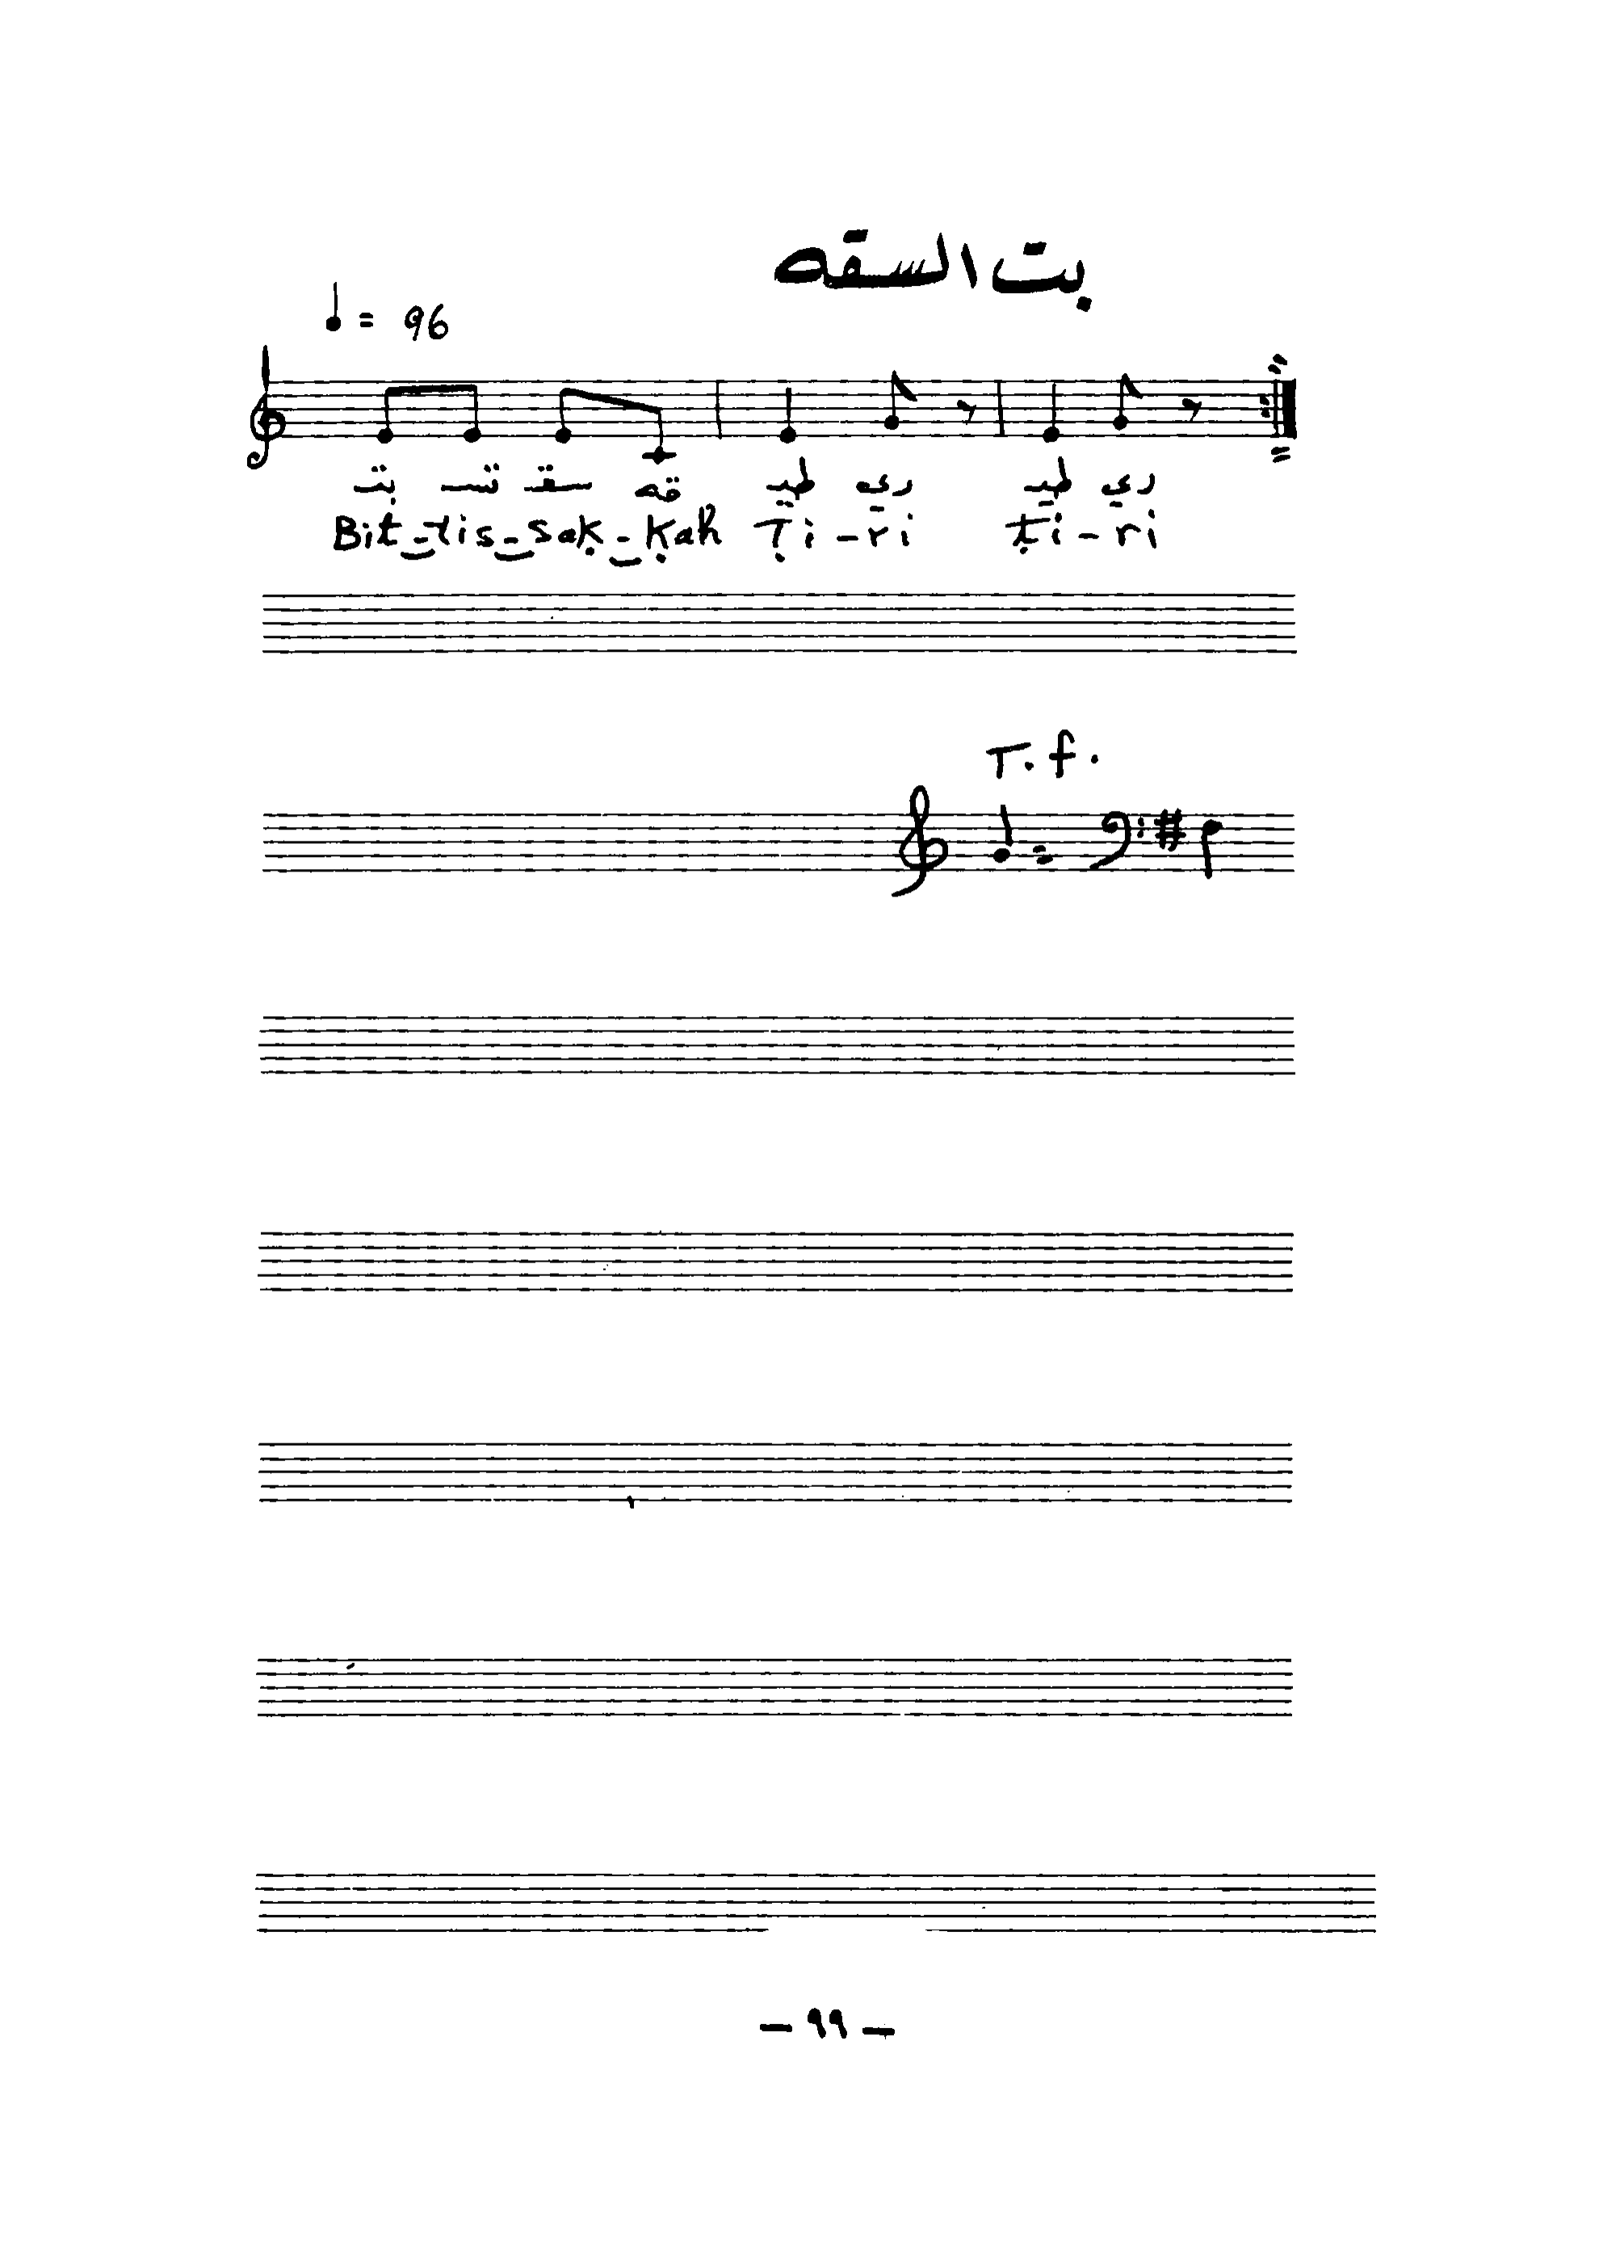 بت السقه
= 96
بت تسـ سقـ قه طيـ ري طيـ ري
Bit-tis-saḳ-ḳah Ṭi-ri ṭi-ri
T. f.
- ٩٩ -